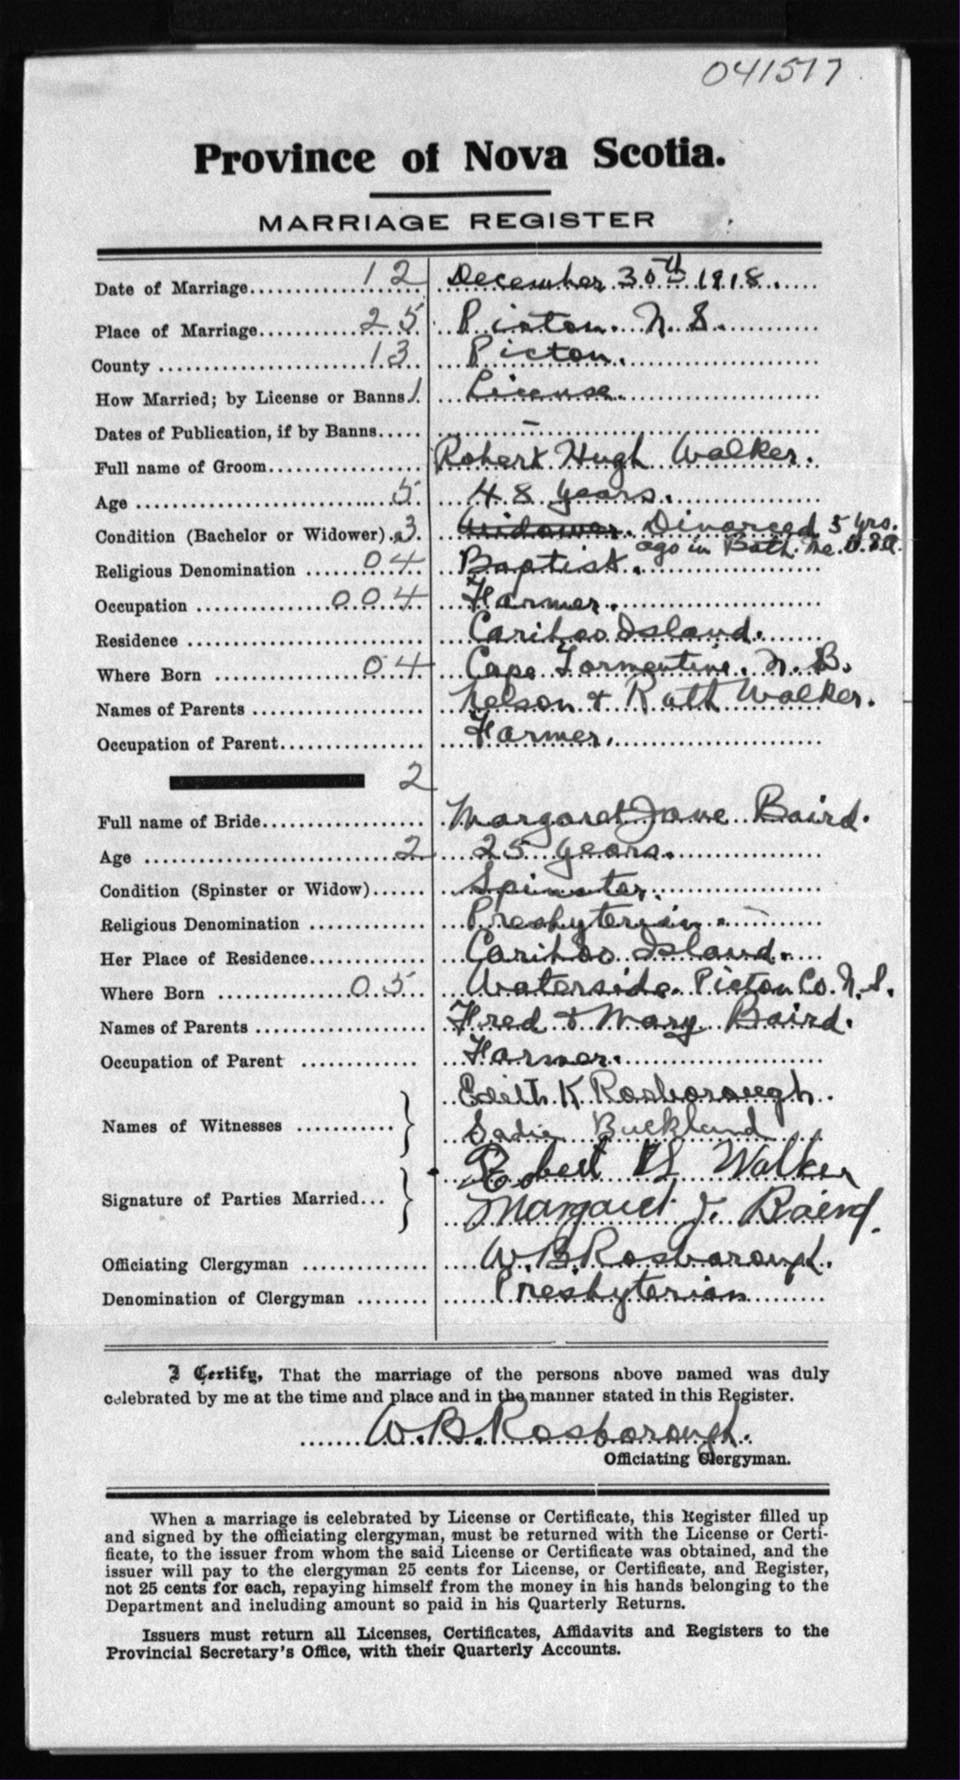 041517
Province of Nova Scotia.
MARRIAGE REGISTER
Date of Marriage 12 December 30th 1918.
Place of Marriage 25 Pictou. N. S.
County 13 Pictou.
How Married; by License or Banns 1. License.
Dates of Publication, if by Banns –
Full name of Groom Robert Hugh Walker.
Age 5 48 years.
Condition (Bachelor or Widower) 3 Widower. Divorced 5 yrs.
ago in Bath. Me. U.S.A.
Religious Denomination 04 Baptist.
Occupation 004 Farmer.
Residence Cariboo Island.
Where Born 04 Cape Tormentine. N. B.
Names of Parents Nelson & Ruth Walker.
Occupation of Parent Farmer.
2
Full name of Bride Margaret Jane Baird.
Age 2 25 years.
Condition (Spinster or Widow) Spinster.
Religious Denomination Presbyterian.
Her Place of Residence Cariboo Island.
Where Born 05 Waterside. Pictou Co. N. S.
Names of Parents Fred & Mary Baird.
Occupation of Parent Farmer.
Names of Witnesses } Edith K Rosborough.
Sadie Buckland
Signature of Parties Married } Robert H Walker
Margaret J. Baird.
Officiating Clergyman W. B. Rosborough.
Denomination of Clergyman Presbyterian
I Certify, That the marriage of the persons above named was duly
celebrated by me at the time and place and in the manner stated in this Register.
W. B. Rosborough.
Officiating Clergyman.
When a marriage is celebrated by License or Certificate, this Register filled up
and signed by the officiating clergyman, must be returned with the License or Certi-
ficate, to the issuer from whom the said License or Certificate was obtained, and the
issuer will pay to the clergyman 25 cents for License, or Certificate, and Register,
not 25 cents for each, repaying himself from the money in his hands belonging to the
Department and including amount so paid in his Quarterly Returns.
Issuers must return all Licenses, Certificates, Affidavits and Registers to the
Provincial Secretary's Office, with their Quarterly Accounts.